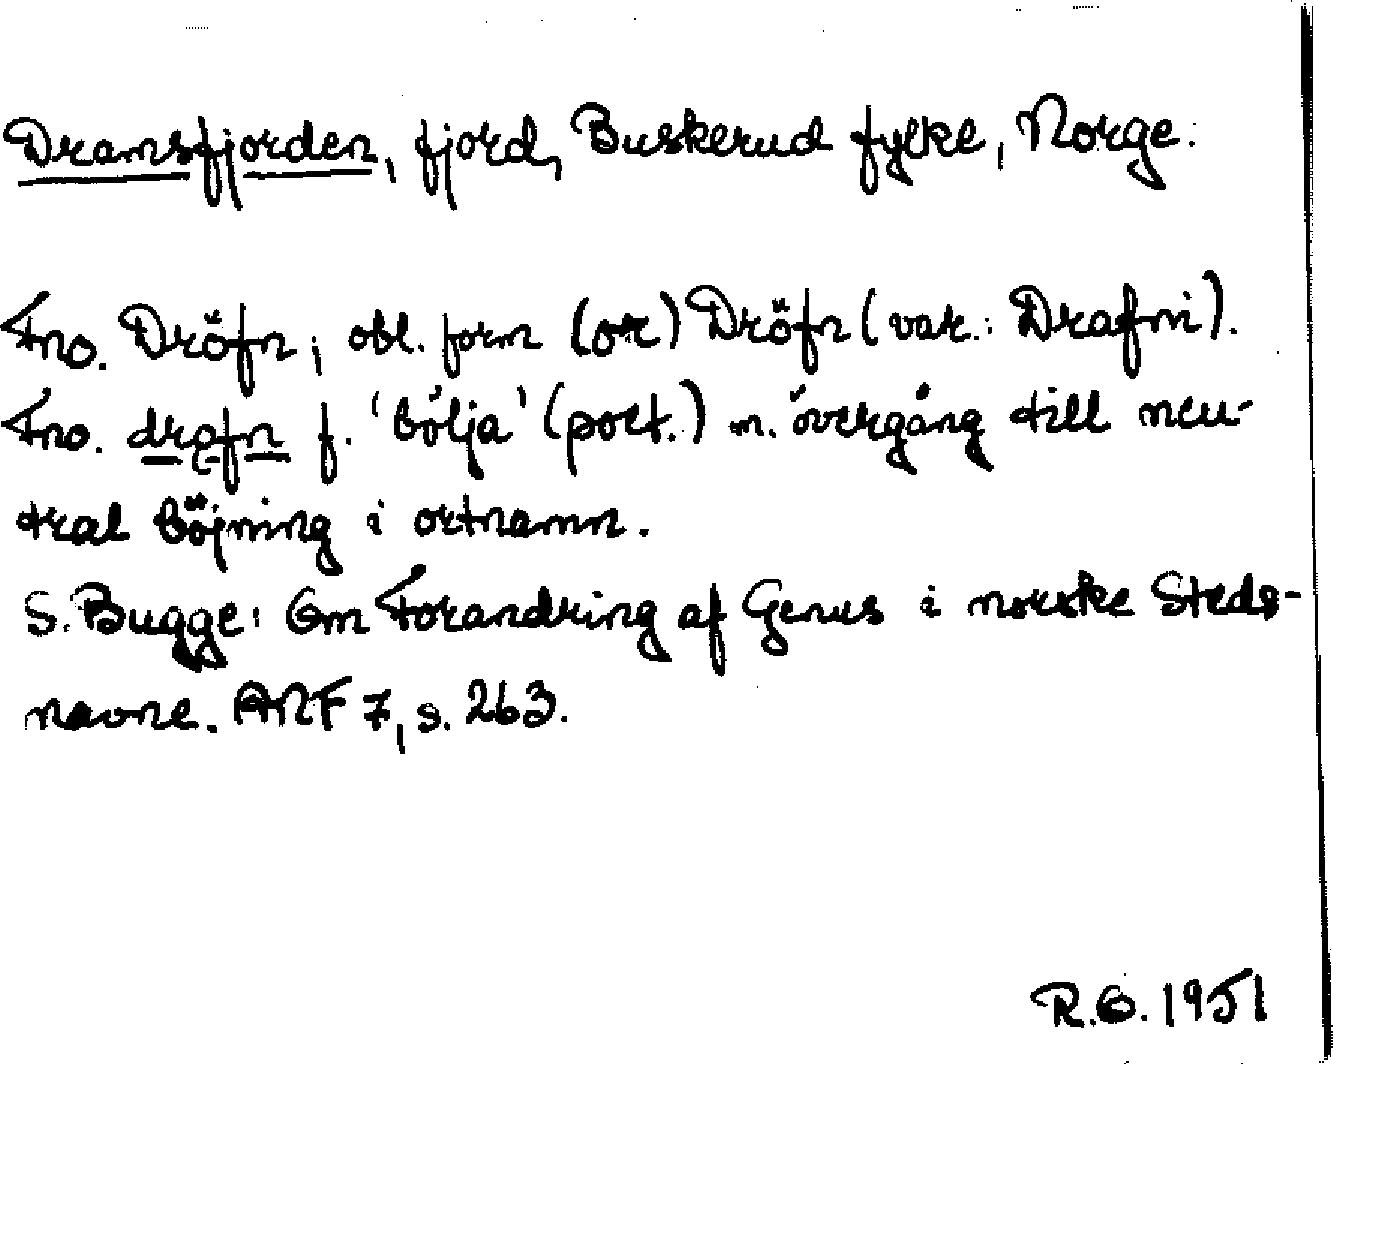 Dramsfjorden, fjord, Buskerud fylke, Norge.
Fno. Dröfn; obl. form (or) Dröfn (var.: Drafni).
Fno. drǫfn f. 'bölja' (poet.) m. övergång till neu-
tral böjning i ortnamn.
S. Bugge: Om Forandring af Genus i norske Steds-
navne. ANF 7, s. 263.
R.O. 1951